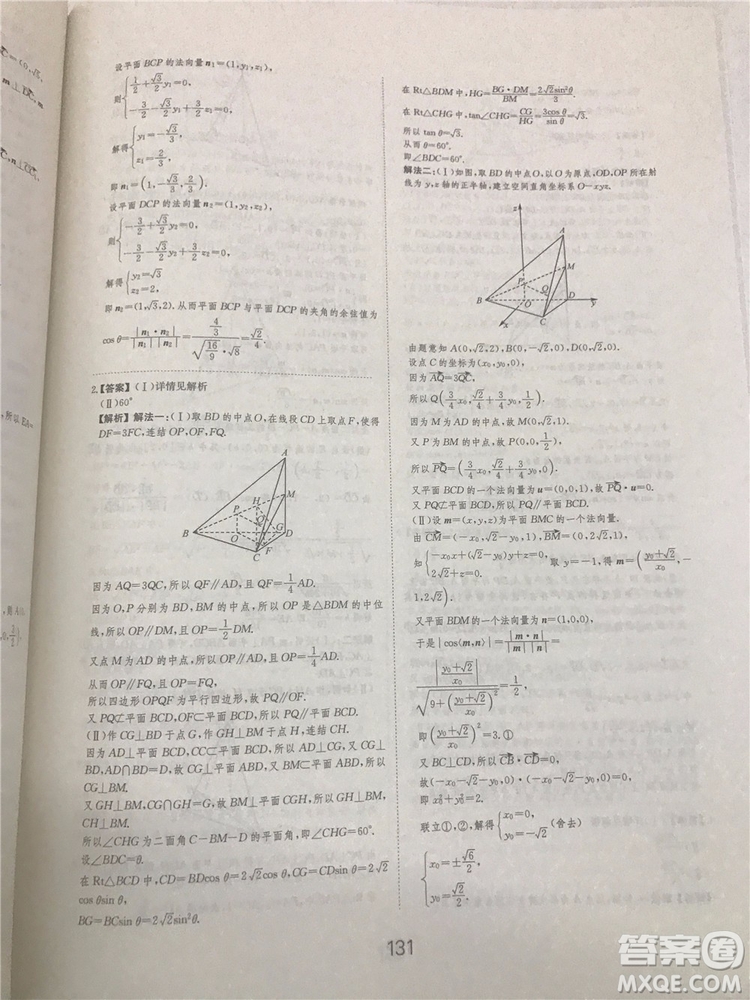 设平面 BCP 的法向量 n₁=(1,y₁,z₁),
则{1/2+√3/2 y₁=0,
-3/2-√3/2 y₁+z₁=0,
解得{y₁=-√3/3,
z₁=2/3,
即 n₁=(1,-√3/3,2/3).
设平面 DCP 的法向量 n₂=(1,y₂,z₂),
则{-3/2+√3/2 y₂=0,
-3/2-√3/2 y₂+z₂=0,
解得{y₂=√3
z₂=2,
即 n₂=(1,√3,2). 从而平面 BCP 与平面 DCP 的夹角的余弦值为
cos θ=|n₁·n₂|/|n₁||n₂|=4/3/√(16/9)·√8=√2/4
2.【答案】(Ⅰ)详情见解析
(Ⅱ)60°
【解析】解法一:(Ⅰ)取 BD 的中点 O,在线段 CD 上取点 F,使得
DF=3FC,连结 OP,OF,FQ.
A
P
H
M
Q
G
B
O
D
C
F
因为 AQ=3QC,所以 QF∥AD,且 QF=1/4 AD.
因为 O,P 分别为 BD,BM 的中点,所以 OP 是△BDM 的中位
线,所以 OP∥DM,且 OP=1/2 DM.
又点 M 为 AD 的中点,所以 OP∥AD,且 OP=1/4 AD.
从而 OP∥FQ,且 OP=FQ,
所以四边形 OPQF 为平行四边形,故 PQ∥OF.
又 PQ⊄平面 BCD,OF⊂平面 BCD,所以 PQ∥平面 BCD.
(Ⅱ)作 CG⊥BD 于点 G,作 GH⊥BM 于点 H,连结 CH.
因为 AD⊥平面 BCD,CG⊂平面 BCD,所以 AD⊥CG,又 CG⊥
BD,AD∩BD=D,故 CG⊥平面 ABD,又 BM⊂平面 ABD,所以
CG⊥BM.
又 GH⊥BM,CG∩GH=G,故 BM⊥平面 CGH,所以 GH⊥BM,
CH⊥BM.
所以∠CHG 为二面角 C-BM-D 的平面角,即∠CHG=60°.
设∠BDC=θ.
在 Rt△BCD 中,CD=BDcos θ=2√2cos θ,CG=CDsin θ=2√2
cos θsin θ,
BG=BCsin θ=2√2sin²θ.
在 Rt△BDM 中,HG=BG·DM/BM=2√2sin²θ/3.
在 Rt△CHG 中,tan∠CHG=CG/HG=3cos θ/sin θ=√3.
所以 tan θ=√3.
从而 θ=60°.
即∠BDC=60°.
解法二:(Ⅰ)如图,取 BD 的中点 O,以 O 为原点,OD,OP 所在射
线为 y,z 轴的正半轴,建立空间直角坐标系 O-xyz.
z
A
M
P
Q
B
O
D
y
x
C
由题意知 A(0,√2,2),B(0,-√2,0),D(0,√2,0).
设点 C 的坐标为(x₀,y₀,0),
因为 AQ=3QC,
所以 Q(3/4 x₀,√2/4+3/4 y₀,1/2).
因为 M 为 AD 的中点,故 M(0,√2,1).
又 P 为 BM 的中点,故 P(0,0,1/2),
所以 PQ=(3/4 x₀,√2/4+3/4 y₀,0).
又平面 BCD 的一个法向量为 u=(0,0,1),故 PQ·u=0.
(Ⅱ)设 m=(x,y,z)为平面 BMC 的一个法向量.
由 CM=(-x₀,√2-y₀,1),BM=(0,2√2,1),
知{-x₀x+(√2-y₀)y+z=0,
2√2y+z=0. 取 y=-1,得 m=(y₀+√2/x₀,-
1,2√2).
又平面 BDM 的一个法向量为 n=(1,0,0),
于是|cos⟨m,n⟩|=|m·n|/|m||n|=
|y₀+√2/x₀|/√(9+(y₀+√2/x₀)²)=1/2,
即(y₀+√2/x₀)²=3.①
又 BC⊥CD,所以 CB·CD=0,
故(-x₀-√2-y₀,0)·(-x₀,√2-y₀,0)=0,
即 x₀²+y₀²=2.
联立①,②,解得{x₀=0,
y₀=-√2(舍去)
{x₀=±√6/2,
y₀=√2/2.
131
答案圈
MXQE.COM